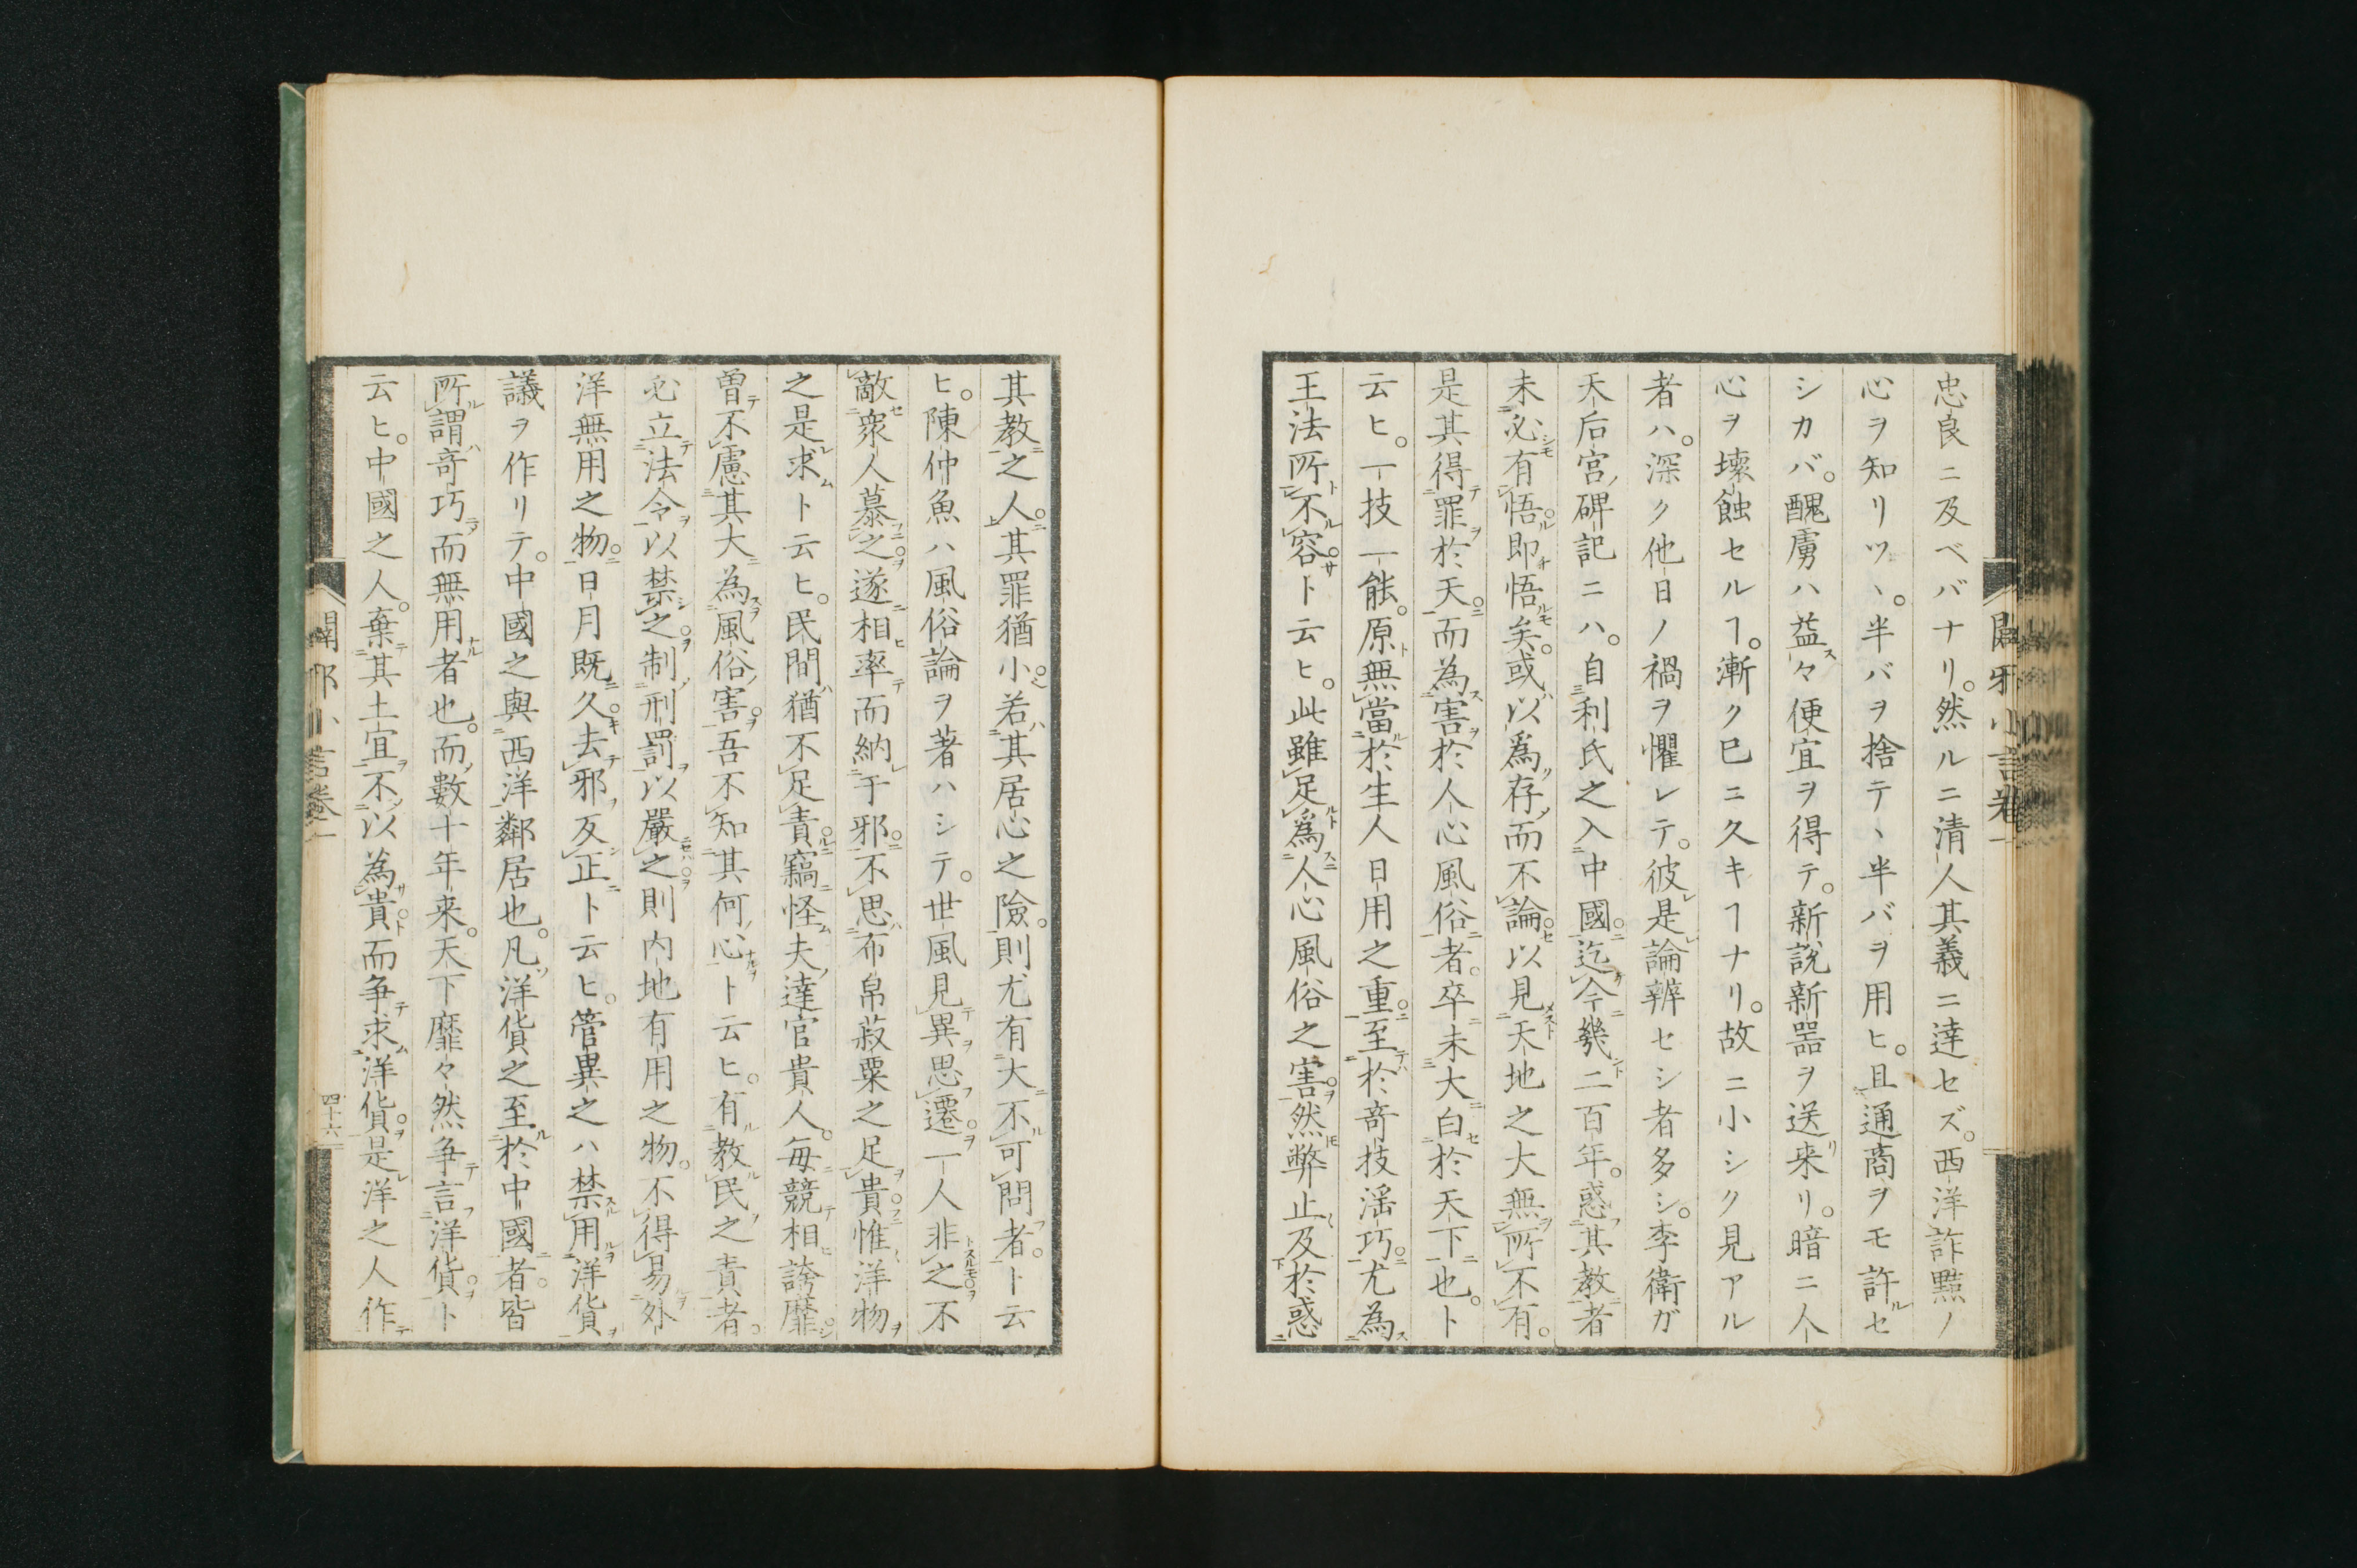 忠良ニ及ベバナリ。然ルニ清人其義ニ達セズ。西洋詐黠ノ
心ヲ知リツヽ。半バヲ捨テヽ半バヲ用ヒ。且通商ヲモ許ルセ
シカバ。醜虜ハ益ス々便宜ヲ得テ。新説新噐ヲ送来リ。暗ニ人
心ヲ壞蝕セルヿ。漸ク已ニ久キヿナリ。故ニ小シク見アル
者ハ。深ク他日ノ禍ヲ懼レテ。彼レ是レ論辨セシ者多シ。李衛ガ
天后宮碑記ニハ。自利氏之入中國。迄今幾二百年。惑其教者
未必有悟即悟矣。或以爲存而不論。以見天地之大無所不有。
是其得罪於天。而為害於人心風俗者。卒未大白於天下也。ト
云ヒ。一技一能。原無當於生人日用之重。至於竒技滛巧。尤為
王法所不容ト云ヒ。此雖足爲人心風俗之害。然弊止及於惑
其教之人。其罪猶小。若其居心之險。則尤有大不可問者。ト云
ヒ。陳仲魚ハ風俗論ヲ著ハシテ。世風見異思遷。一人非之不
敵衆人慕之。遂相率而納于邪。不思布帛菽粟之足貴。惟洋物
之是求ト云ヒ。民間猶不足責。竊怪夫達官貴人。毎競相誇靡。
曽不慮其大為風俗害。吾不知其何心ト云ヒ。有教民之責者。
必立法令以禁之。制刑罰以嚴之。則内地有用之物。不得易外
洋無用之物。日月既久。去邪反正ト云ヒ。管異之ハ禁用洋貨
議ヲ作リテ。中國之與西洋鄰居也。凡洋貨之至於中國者。皆
所謂竒巧而無用者也。而數十年来。天下靡々然争言洋貨。ト
云ヒ。中國之人。棄其土宜不以為貴。而争求洋貨。是洋之人作
闢邪小言卷一
四十六